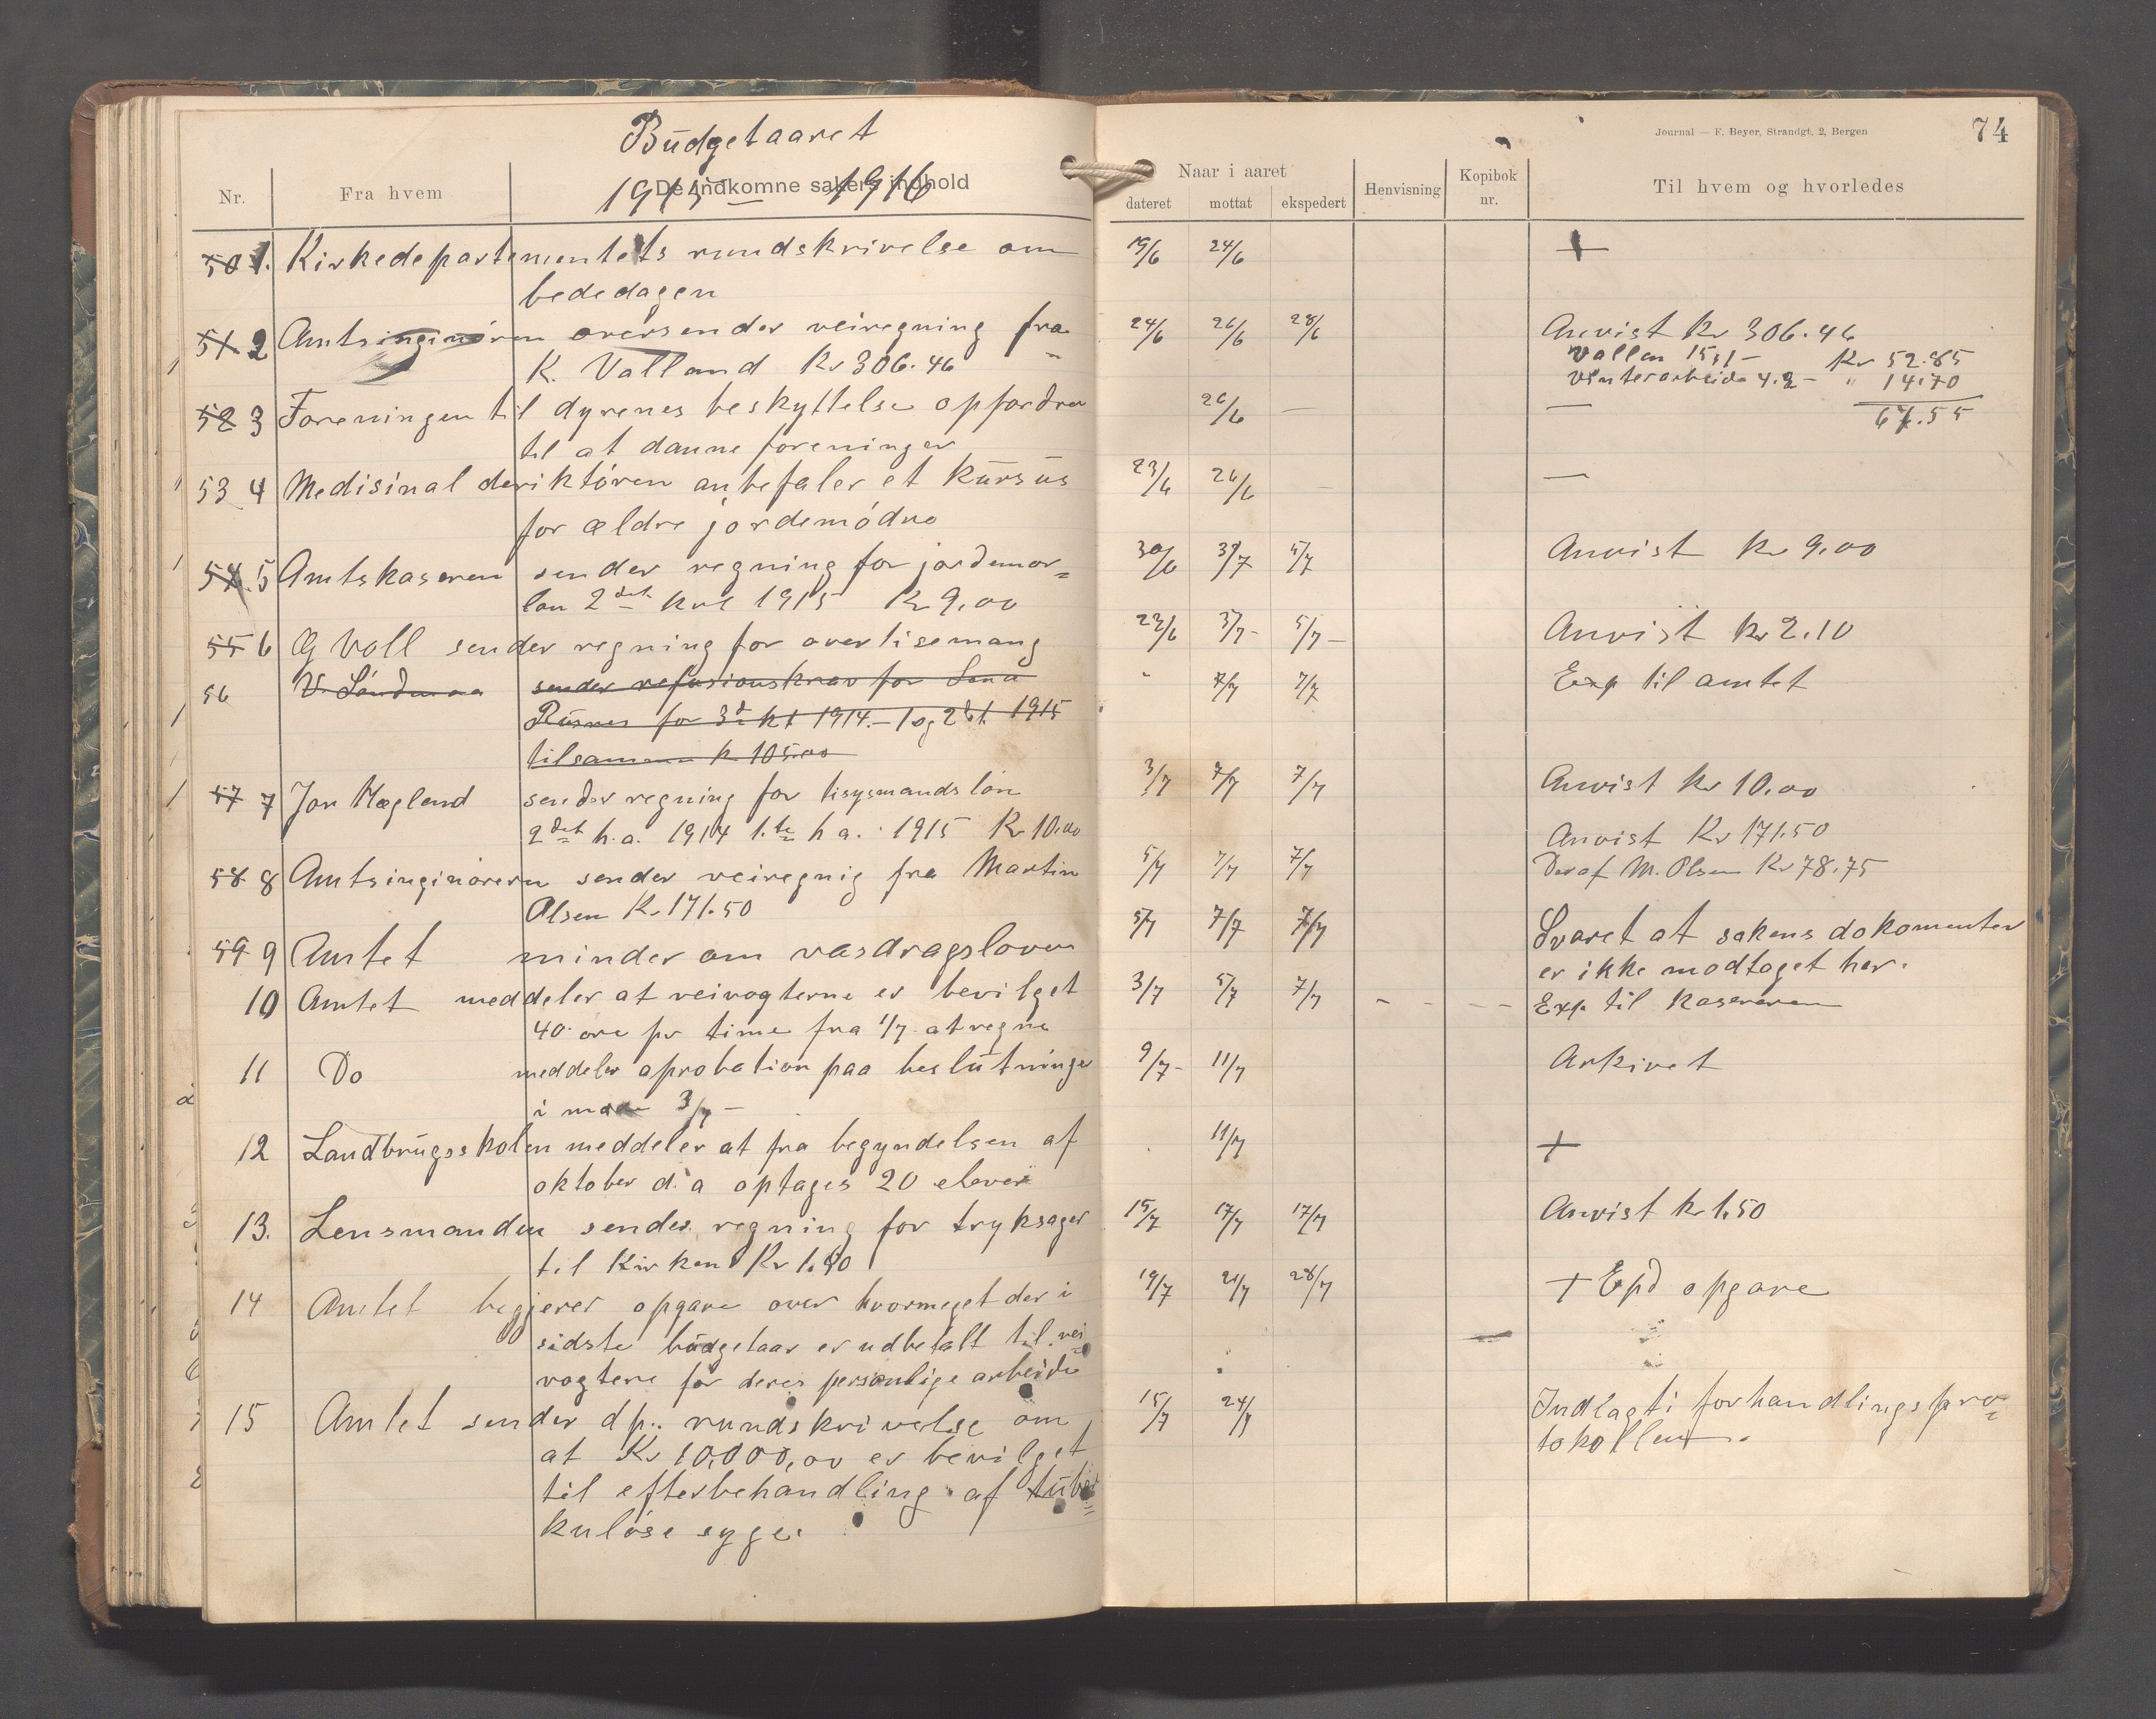 Budgetaaret
1915 — 1916
Journal — F. Beyer, Strandgt. 2, Bergen
74
Nr. Fra hvem De indkomne sakers indhold Naar i aaret Henvisning Kopibok nr. Til hvem og hvorledes
dateret mottat ekspedert
50 1. Kirkedepartementets rundskrivelse om 19/6 24/6 +
bededagen
51 2 Amtsinginøren oversender veiregning fra 24/6 26/6 28/6 Anvist Kr 306.46
K. Valland Kr 306.46 Vallen 151 — Kr 52.85
Vinterarbeide 4.2 — " 14.70
52 3 Foreningen til dyrenes beskyttelse opfordrer 26/6 — — 67.55
til at danne foreninger
53 4 Medisinal deriktøren anbefaler et kursus 23/6 26/6 — —
for ældre jordemødre
54. 5 Amtskaseren sender regning for jordemor= 30/6 3/7 5/7 Anvist Kr 9,00
løn 2det kvt 1915 Kr 9,00
55 6 G Voll sender regning for avertisemang 22/6 3/7 - 5/7 — Anvist kr 2.10
56 V. Søndenaa sender refusionskrav for Lena " 7/7 7/7 Exp til amtet
Rusnes for 3d kt 1914. — 1 og 2 kt. 1915
tilsammen kr 105.00
57 7 Jon Hægland sender regning for tisynsmandsløn 3/7 7/7 7/7 Anvist Kr 10.00
2det h.a. 1914 1.te h a. 1915 Kr 10.00
Anvist Kr 171.50
58 8 Amtsinginøren sender veiregnig fra Martin 5/7 7/7 7/7 Deraf M. Olsen Kr 78.75
Olsen Kr. 171.50
59 9 Amtet minder om vasdragsloven 5/7 7/7 7/7 Svaret at sakens dokomenter
er ikke modtaget her.
10 Amtet meddeler at veivogterne er bevilget 3/7 5/7 7/7 - - - - Exp. til kasereren
40 øre pr time fra 1/7 at regne
11 Do meddeler aprobation paa beslutninger 9/7 - 11/7 Arkivet
i møde 3/7 —
12 Landbrugsskolen meddeler at fra begyndelsen af 11/7 +
oktober d. a optages 20 elever
13. Lensmanden sender regning for tryksager 15/7 17/7 17/7 Anvist kr 1.50
til Kirken Kr 1.50
14 Amtet begjerer opgave over hvormeget der i 19/7 21/7 28/7 + Epd opgave
sidste budgetaar er udbetalt til vei=
vogtere for deres personlige arbeide
15 Amtet sender dp.. rundskrivelse om 15/7 24/7 Indlagt i forhandlingspro=
at Kr 10,000,00 er bevilget tokollen.
til efterbehandling af tuber=
kuløse syge.